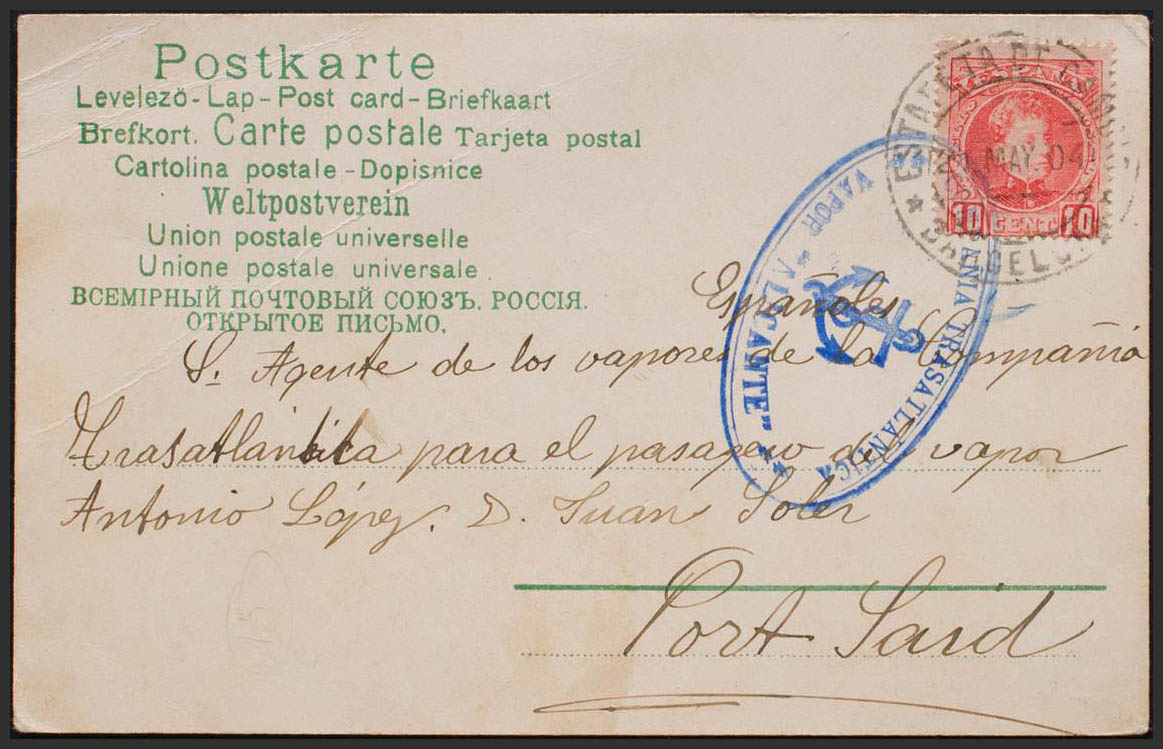 Postkarte
Levelező - Lap - Post card - Briefkaart
Brefkort. Carte postale Tarjeta postal
Cartolina postale - Dopisnice
Weltpostverein
Union postale universelle
Unione postale universale.
ВСЕМІРНЫЙ ПОЧТОВЫЙ СОЮЗЪ. РОССІЯ.
ОТКРЫТОЕ ПИСЬМО.
MAY. 04
10 CENT 10
TRASATLÁNTICA
VAPOR "ALICANTE"
Españoles
S. Agente de los vapores de la Compañia
Trasatlántica para el pasagero del vapor
Antonio López. D. Juan Soler
Port Said